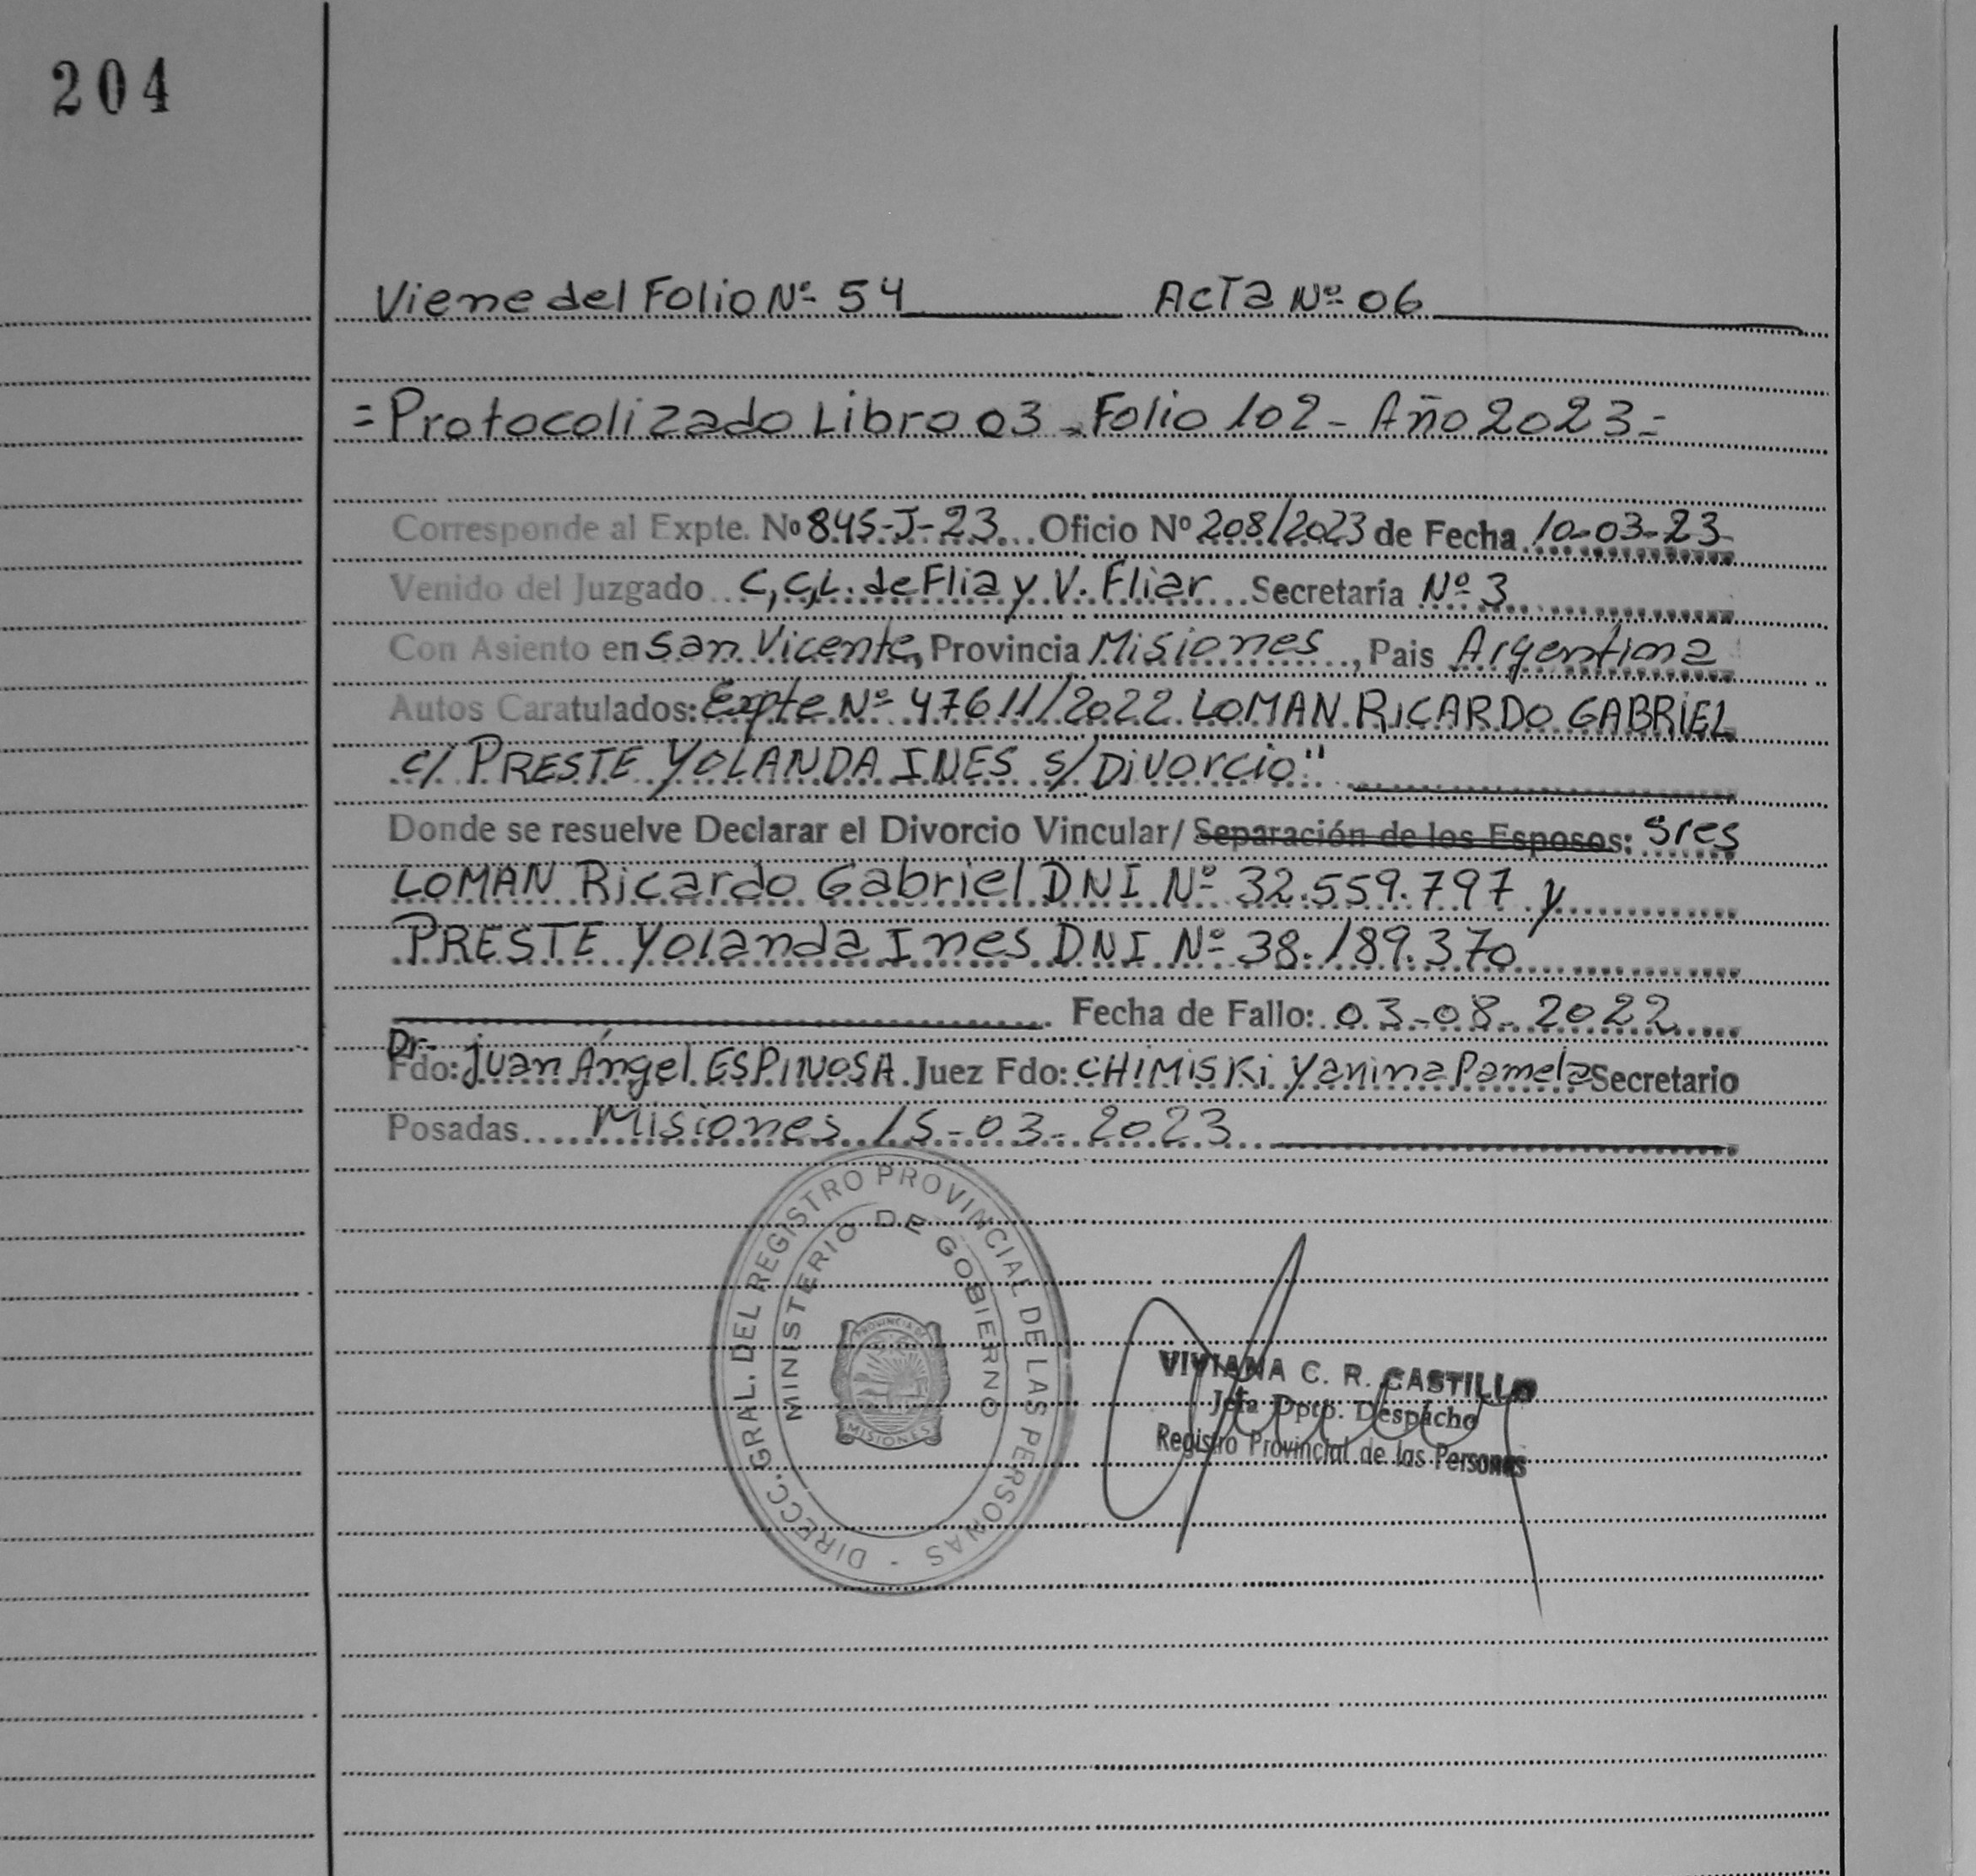 204
Viene del Folio Nº 54 Acta Nº 06
= Protocolizado Libro 03 - Folio 102 - Año 2023 =
Corresponde al Expte. Nº 845-J-23 Oficio Nº 208/2023 de Fecha 10-03-23
Venido del Juzgado C,C,L. de Flia y V. Fliar Secretaría Nº 3
Con Asiento en San Vicente, Provincia Misiones, Pais Argentina
Autos Caratulados: Expte Nº 47611/2022 LOMAN RICARDO GABRIEL
c/ PRESTE YOLANDA INES s/ Divorcio"
Donde se resuelve Declarar el Divorcio Vincular/ Separación de los Esposos: Sres
LOMAN Ricardo Gabriel DNI Nº 32.559.797 y
PRESTE Yolanda Ines DNI Nº 38.189.370
Fecha de Fallo: 03-08-2022
Dr.
Fdo: Juan Ángel ESPINOSA Juez Fdo: CHIMISKI Yanina Pamela Secretario
Posadas Misiones 15-03-2023
DIRECC. GRAL. DEL REGISTRO PROVINCIAL DE LAS PERSONAS -
MINISTERIO DE GOBIERNO
PROVINCIA DE
MISIONES
VIVIANA C. R. CASTILLO
Jefa Dpto. Despacho
Registro Provincial de las Personas